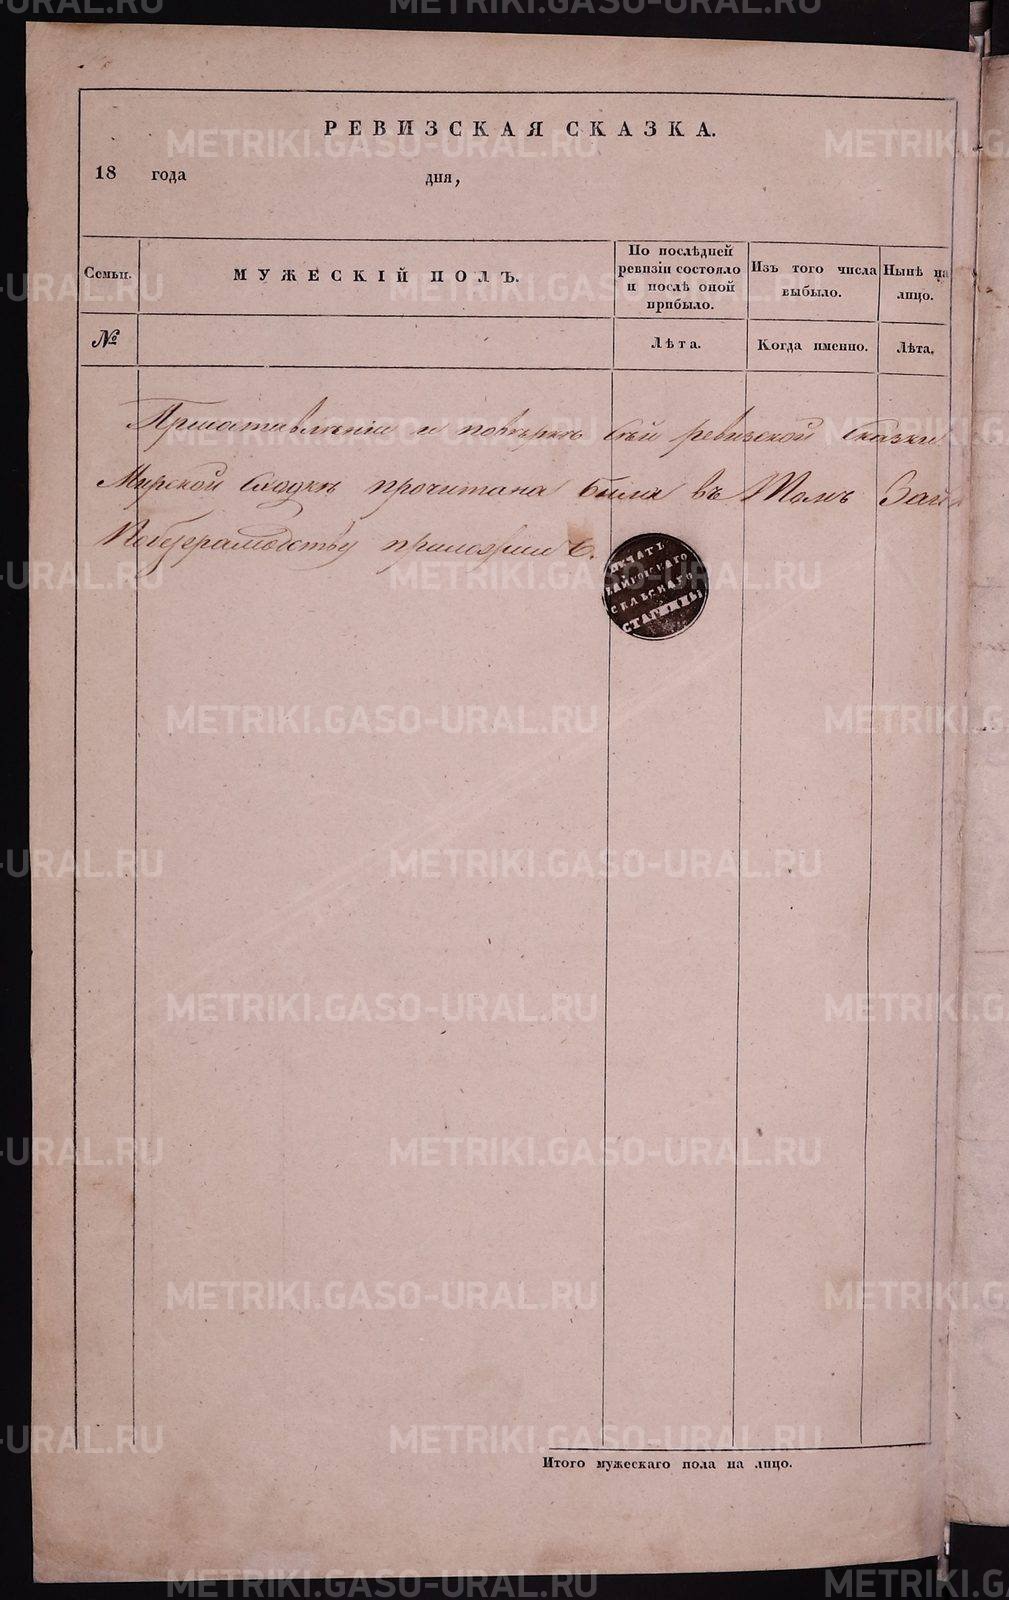 РЕВИЗСКАЯ СКАЗКА.
18 года дня,
Семьи.
МУЖЕСКІЙ ПОЛЪ.
По послѣдней ревизіи состояло и послѣ оной прибыло.
Изъ того числа выбыло.
Нынѣ на лицо.
№
Лѣта.
Когда именно.
Лѣта.
При составленіи и повѣркѣ сей ревизской сказки
Мирской сходкѣ прочитана была въ томъ
По безграмотству приложилъ
ПЕЧАТЬ
СЕЛЬСКАГО
СТАРШИНЫ
Итого мужескаго пола на лицо.
METRIKI.GASO-URAL.RU